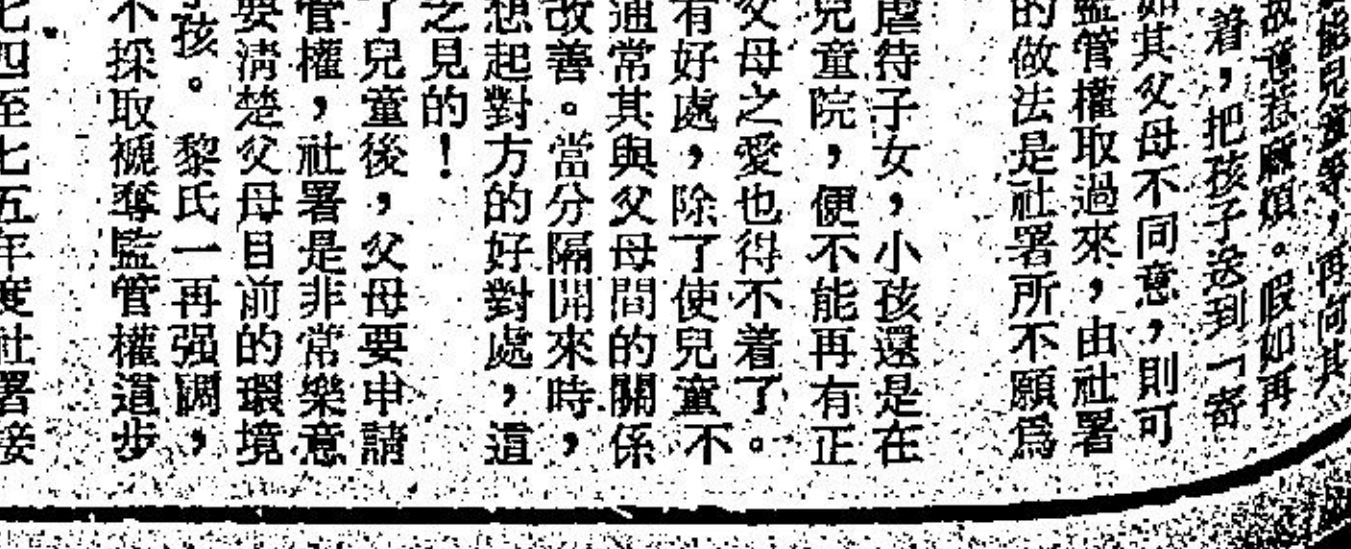 能兒童等，再向其
故意惹麻煩。假如再
着，把孩子送到「寄
如其父母不同意，則可
監管權取過來，由社署
的做法是社署所不願為
虐待子女，小孩還是在
兒童院，便不能再有正
父母之愛也得不着了。
有好處，除了使兒童不
通常其與父母間的關係
改善。當分隔開來時，
想起對方的好對處，這
之見的！
了兒童後，父母要申請
管權，社署是非常樂意
要清楚父母目前的環境
孩。黎氏一再强調，
不採取褫奪監管權這步
七四至七五年度社署接